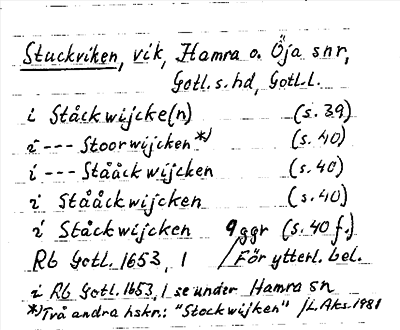 Stuckviken, vik, Hamra o. Öja snr,
Gotl. s. hd, Gotl. l.
i Ståckwijcke(n) (s. 39)
i --- Stoorwijcken *) (s. 40)
i --- Stååckwijcken (s. 40)
i Stååckwijcken (s. 40)
i Ståckwijcken 9 ggr (s. 40 f.)
Rb Gotl. 1653, 1 /För ytterl. bel.
i Rb Gotl. 1653, 1 se under Hamra sn
*) Två andra hskr.: "Stockwijken" /L. Aks. 1981